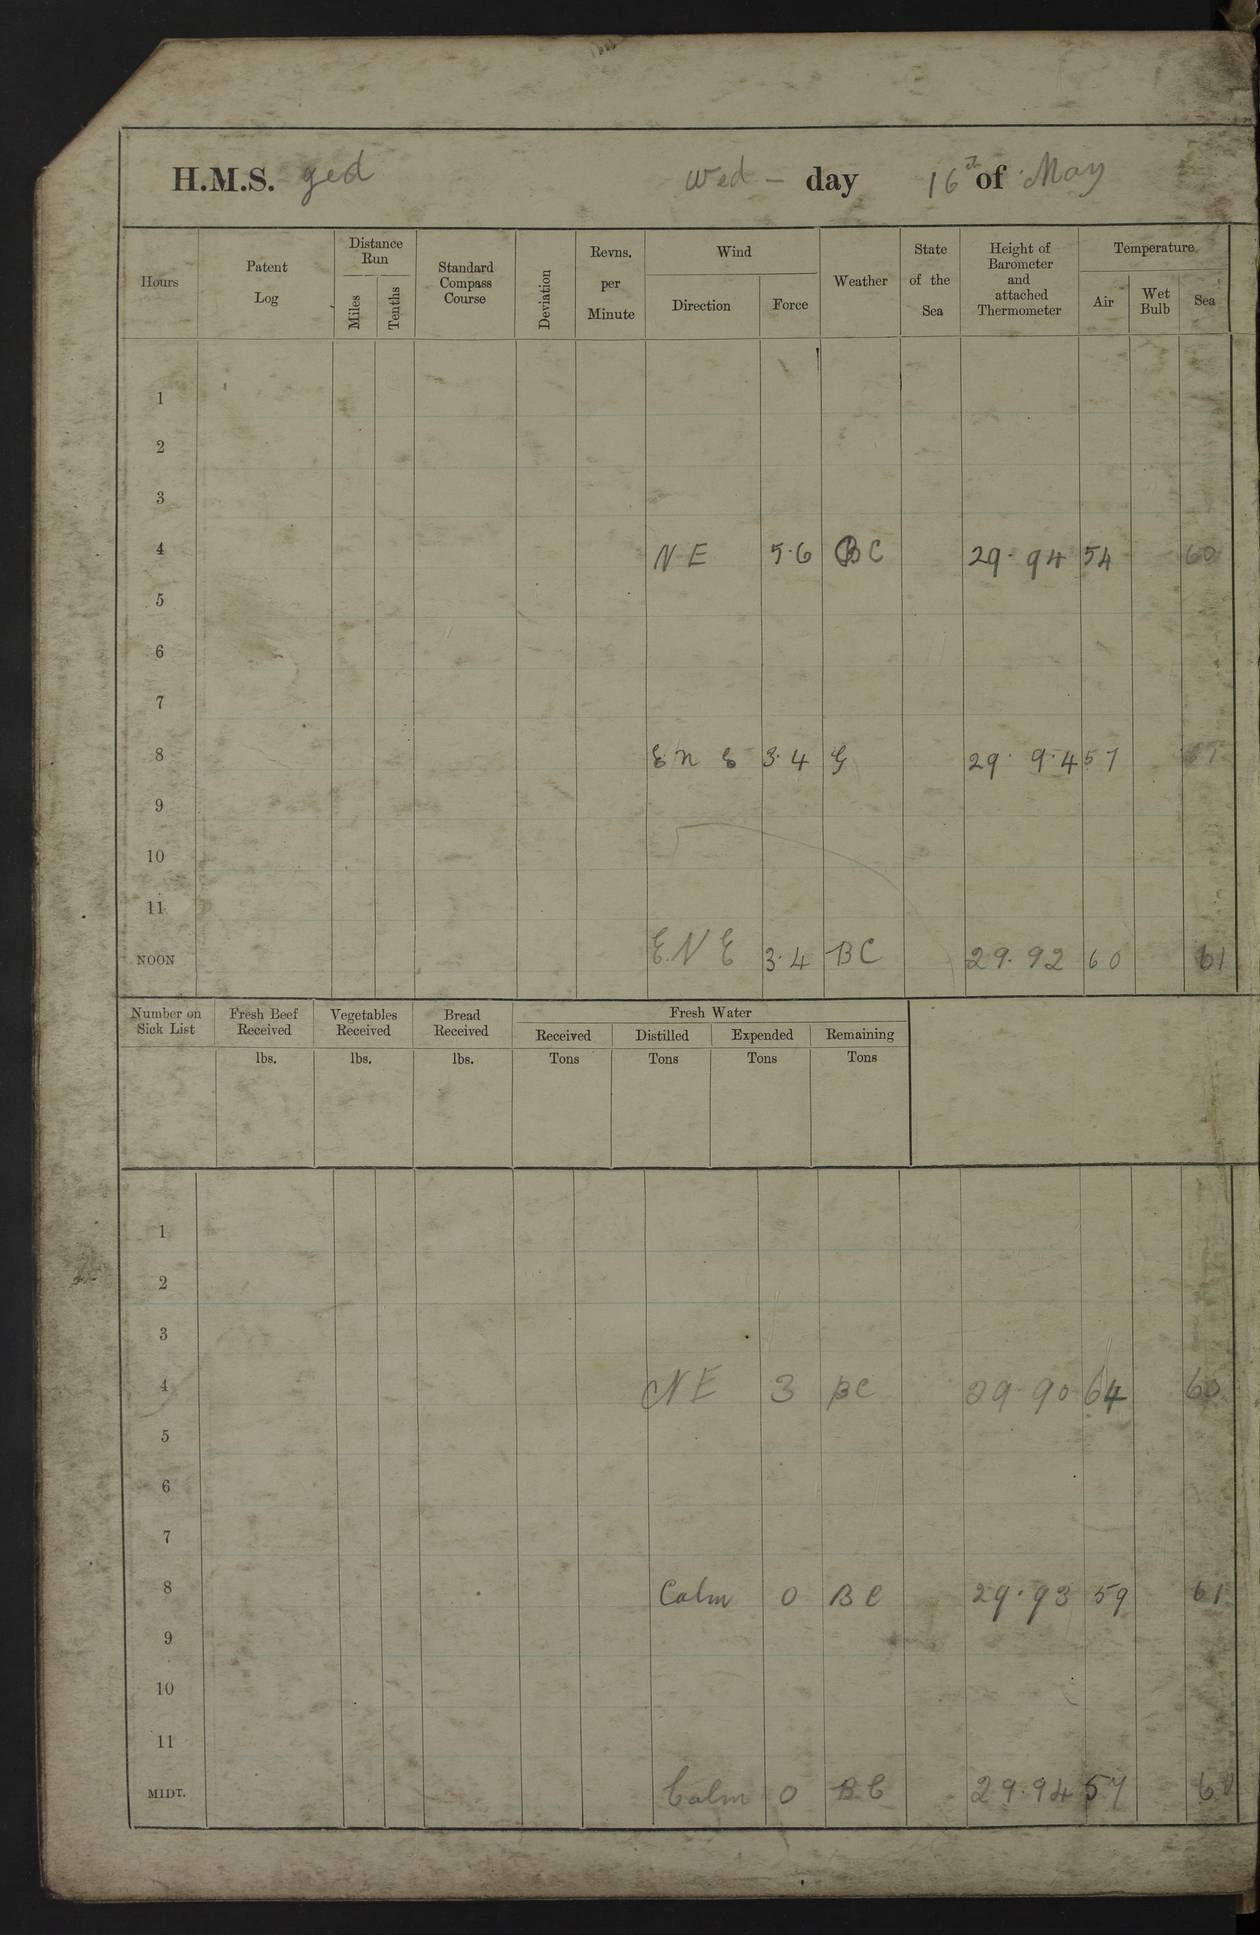 H.M.S. ged Wed - day 16th of May
Hours Patent Log Distance Run Miles Tenths Standard Compass Course Deviation Revns. per Minute Wind Direction Force Weather State of the Sea Height of Barometer and attached Thermometer Temperature Air Wet Bulb Sea
1
2
3
4 NE 5.6 BC 29.94 54 60
5
6
7
8 ENE 3.4 G 29.9.4 57
9
10
11
NOON ENE 3.4 BC 29.92 60 61
Number on Sick List Fresh Beef Received Vegetables Received Bread Received Fresh Water
Received Distilled Expended Remaining
lbs. lbs. lbs. Tons Tons Tons Tons
1
2
3
4 NE 3 BC 29.90 64 60
5
6
7
8 Calm 0 BC 29.93 59 61
9
10
11
MIDT. Calm 0 BC 29.94 57